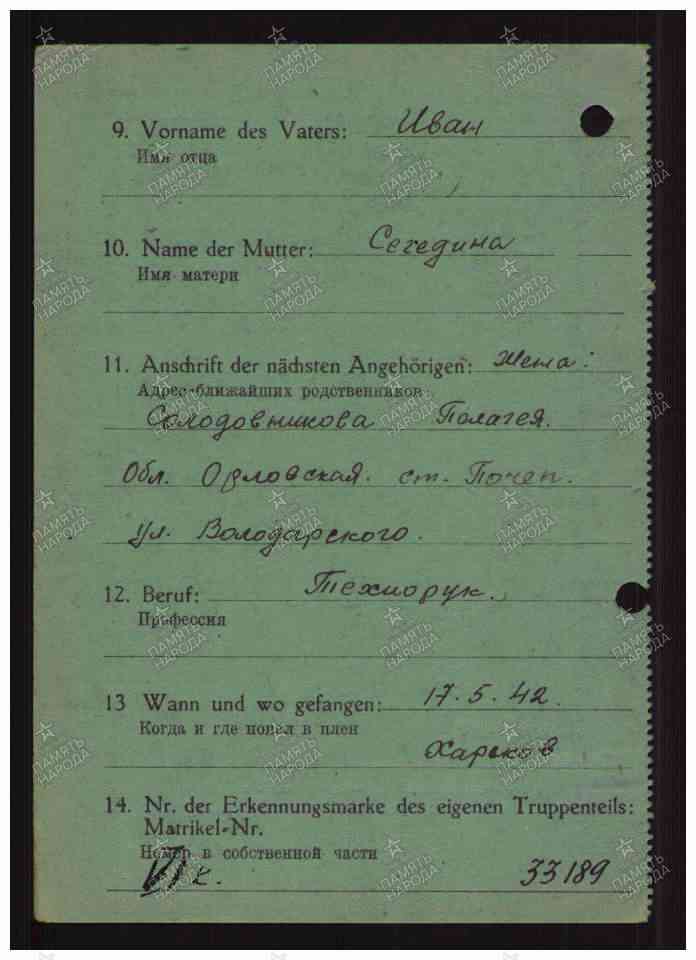 9. Vorname des Vaters: Иван
Имя отца
10. Name der Mutter: Сегедина
Имя матери
11. Anschrift der nächsten Angehörigen: жена:
Адрес ближайших родственников
Солодовникова Полагея.
Обл. Орловская. ст. Почеп.
ул. Володарского.
12. Beruf: Технорук.
Профессия
13 Wann und wo gefangen: 17.5.42.
Когда и где попал в плен
Харьков
14. Nr. der Erkennungsmarke des eigenen Truppenteils:
Matrikel-Nr.
Номер в собственной части
VI K. 33189
ПАМЯТЬ НАРОДА